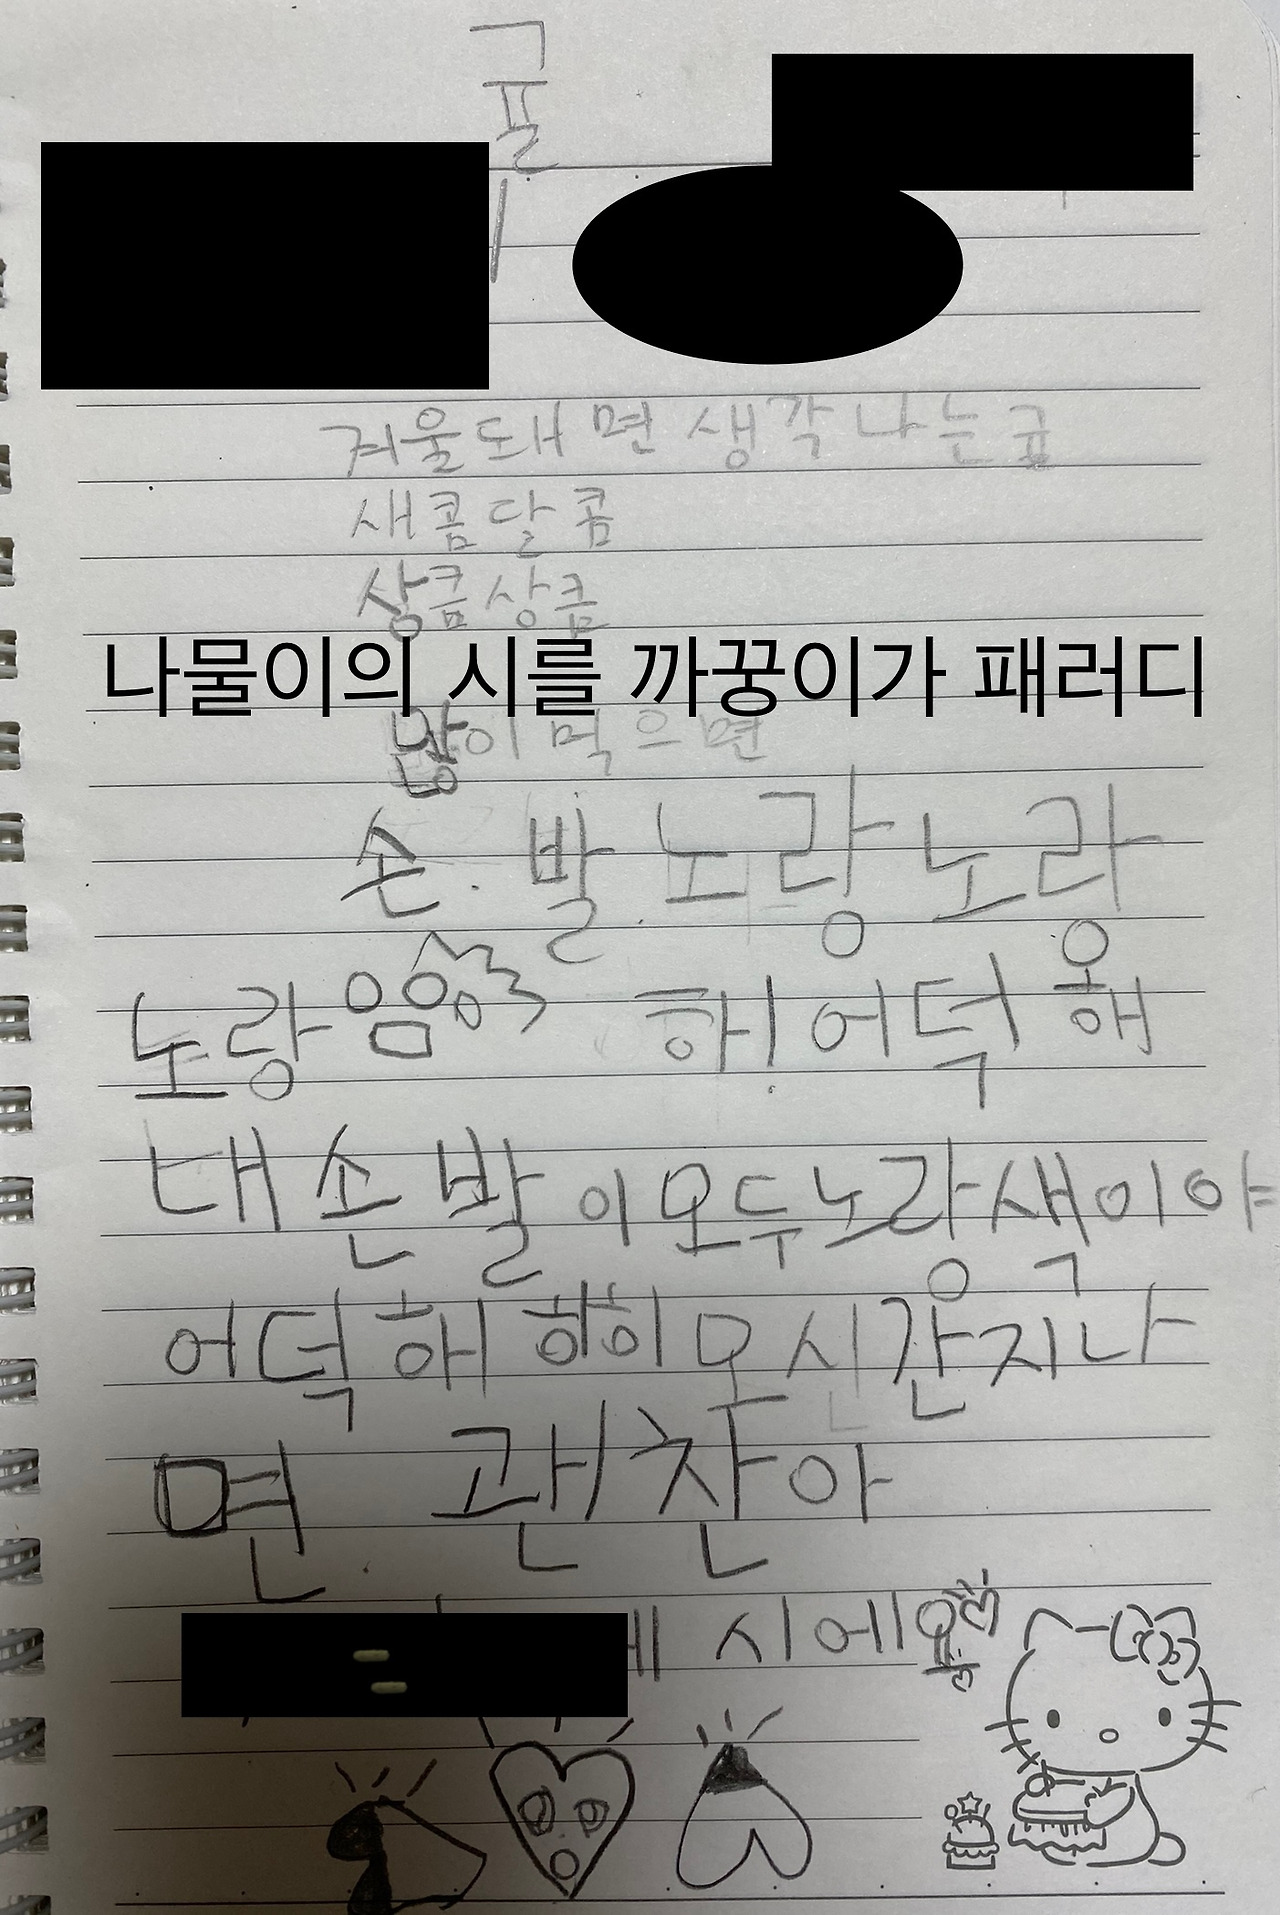 귤
겨울돼면 생각나는귤
새콤달콤
상큼상큼
나물이의 시를 까꿍이가 패러디
많이 먹으면
손.발 노랑노랑
노랑 해! 어덕해
내 손발이 모두노랑색이야
어덕해 시간지나
면 괜찬아
시에요